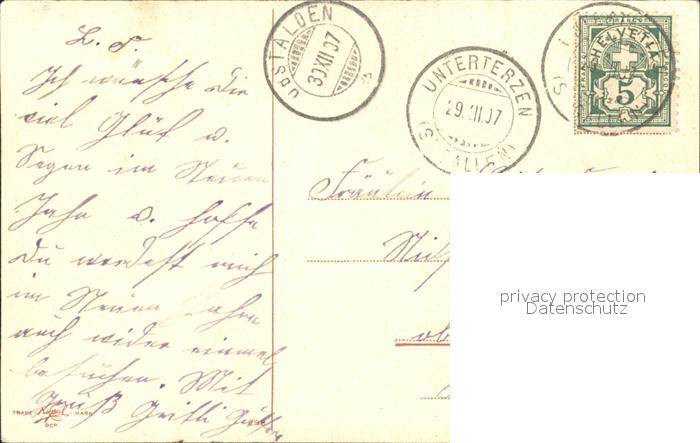 L. F.
Ich wünsche Dir
viel Glük u.
Segen im Neuen
Jahr u. hoffe
Du werdest mich
im Neuen Jahre
auch wider einmal
besuchen. Mit
Gruß Gritli
TRADE MARK
DEP.
OBSTALDEN
30 XII 07
UNTERTERZEN
29.XII.07
(ST. GALLEN)
HELVETIA
5
Fräulein
privacy protection
Datenschutz